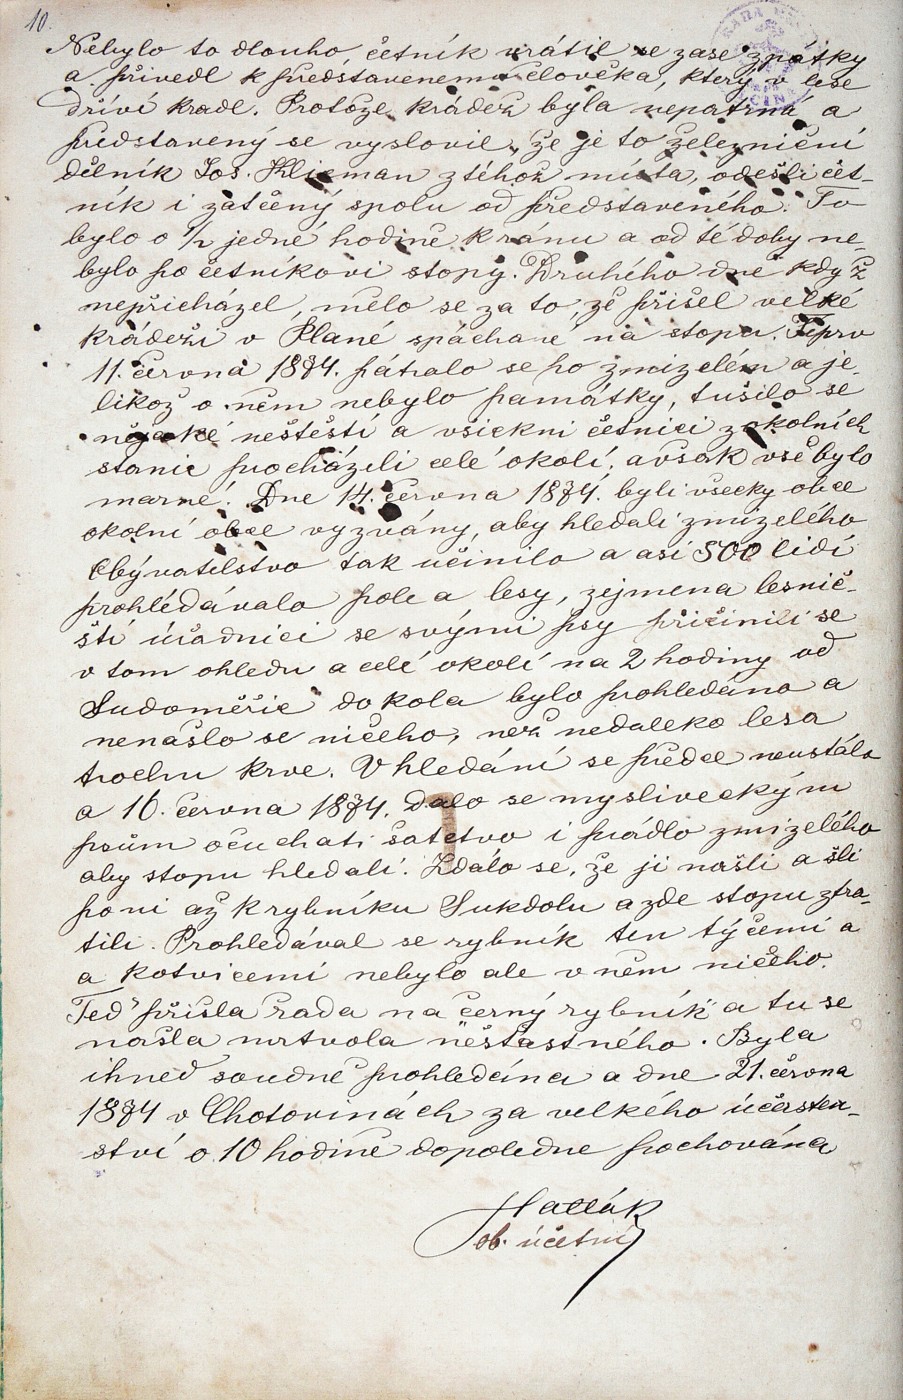 10.
Nebylo to dlouho četník vrátil se zase zpátky
a přivedl k představenému člověka, který v lese
dříví kradl. Protože krádež byla nepatrná a
představený se vyslovil, že je to železniční
dělník Jos. Kliegman z téhož místa, odešli čet-
ník i zatčený spolu od představeného. To
bylo o ½ jedné hodině k ránu a od té doby ne-
bylo po četníkovi stopy. Druhého dne když
nepřicházel, mělo se za to, že přišel velké
krádeži v Plané spáchané na stopu. Teprv
11. června 1874. pátralo se po zmizelém a je-
likož o něm nebylo památky, tušilo se
nějaké neštěstí a všickni četníci z okolních
stanic procházeli celé okolí, avšak vše bylo
marné. Dne 14. června 1874. byli všecky obce
okolní obce vyzvány, aby hledali zmizelého
Obývatelstvo tak učinilo a asi 500 lidí
prohlédávalo pole a lesy, zejmena lesnič-
ští úřadníci se svými psy přičinili se
v tom ohledu a celé okolí na 2 hodiny od
Sudoměřic do kola bylo prohledáno a
nenašlo se ničeho, než nedaleko lesa
trochu krve. V hledání se předce neustálo
a 16. června 1874. dalo se mysliveckým
psům očuchati šatstvo i prádlo zmizelého
aby stopu hledali. Zdálo se, že ji našli a šli
po ní až k rybníku Sukdolu a zde stopu ztra-
tili. Prohledával se rybník ten týčemi a
a kotvicemi nebylo ale v něm ničeho.
Teď přišla řada na černý rybník a tu se
našla mrtvola nešťastného. Byla
ihned soudně prohledána a dne 21. června
1874 v Chotovinách za velkého účasten-
ství o 10 hodině dopoledne pochována
ob. účetní